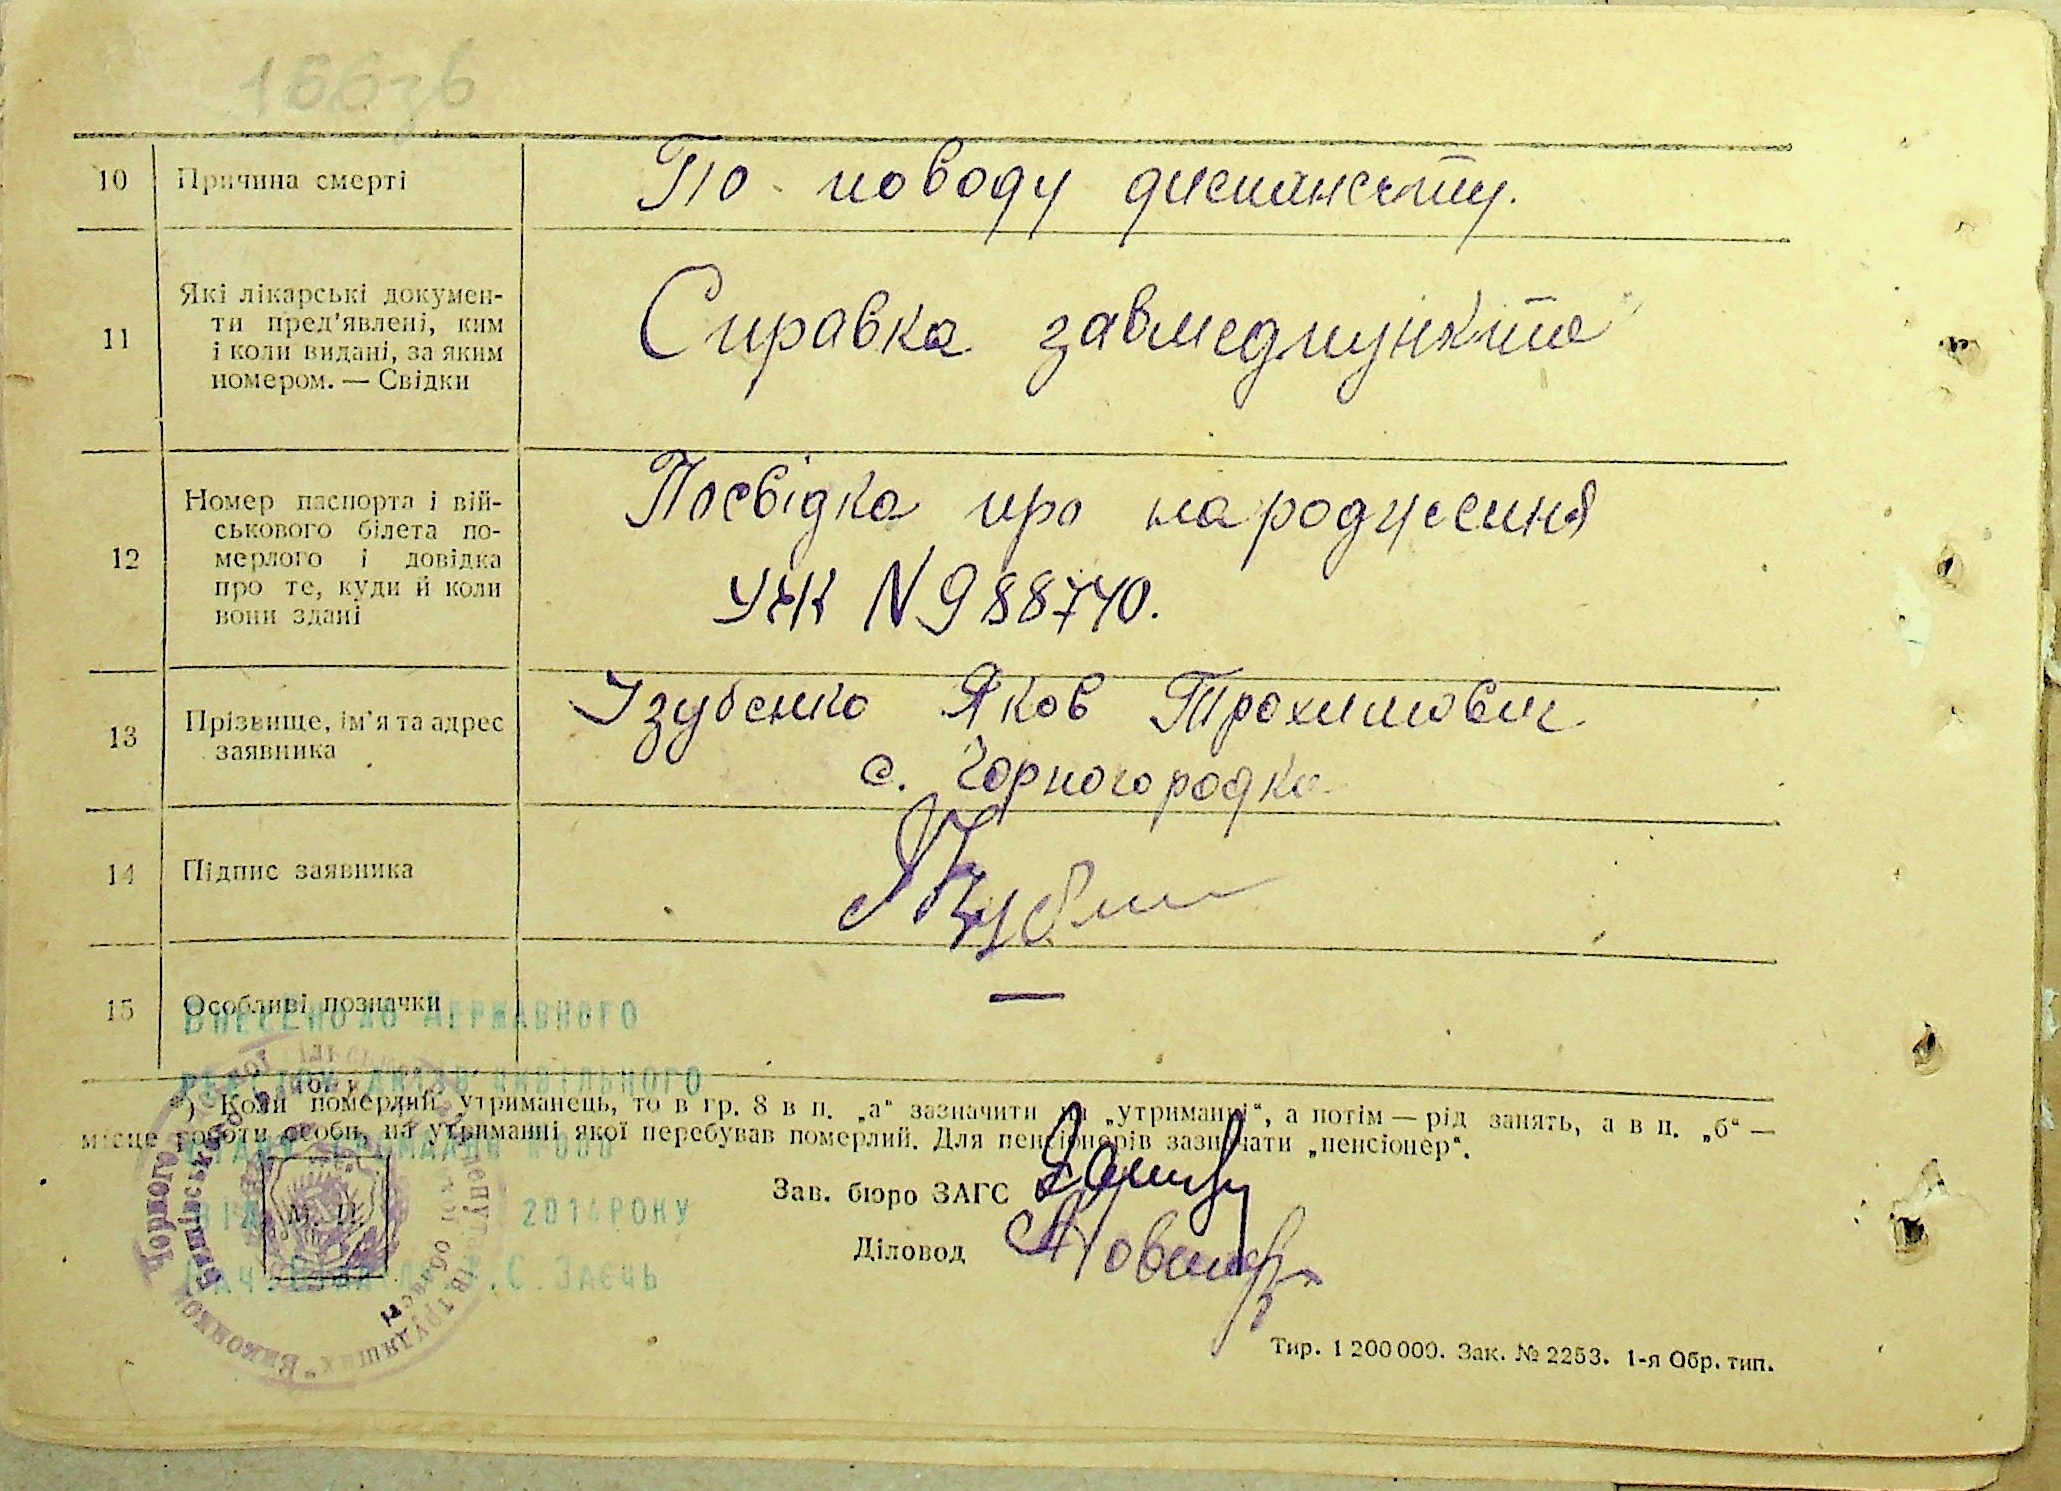 166зв
10 Причина смерті
По поводу
11 Які лікарські докумен-
ти пред'явлені, ким
і коли видані, за яким
номером. — Свідки
Справка завмедпункта
12 Номер паспорта і вій-
ськового білета по-
мерлого і довідка
про те, куди й коли
вони здані
Посвідка про народження
УЖ N 988740.
13 Прізвище, ім'я та адрес
заявника
Яков Трохимович
с. Чорногородка
14 Підпис заявника
15 Особливі позначки
—
Внесено до Державного
реєстру актів цивільного
*) Коли померлий утриманець, то в гр. 8 в п. „а“ зазначити на „утриманні“, а потім — рід занять, а в п. „б“ —
місце роботи особи, на утриманні якої перебував померлий. Для пенсіонерів зазначати „пенсіонер“.
2014 року
М. П.
Зав. бюро ЗАГС
Діловод
С. Заєць
Тир. 1 200 000. Зак. № 2253. 1-я Обр. тип.